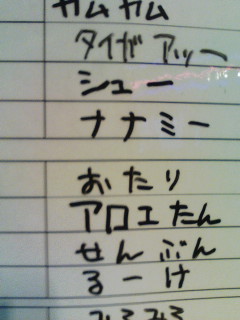 カムカム
タイガアッー
シュー
ナナミー
おたり
アロエたん
せんぶん
るーけ